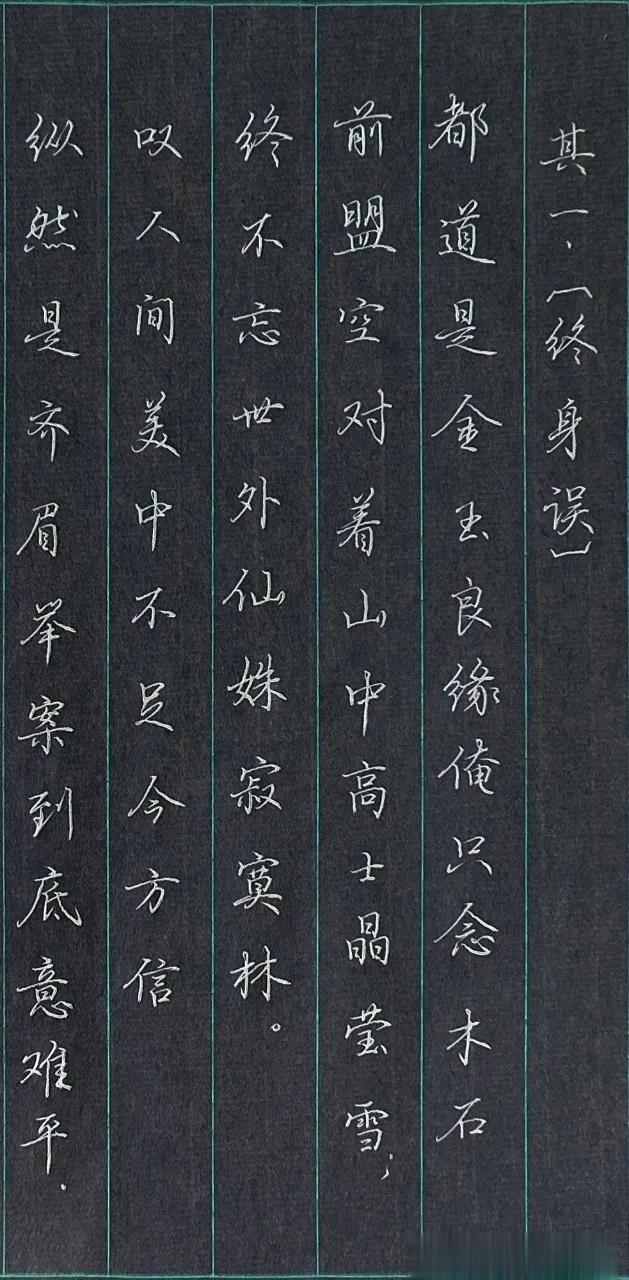 其一、〔终身误〕
都道是金玉良缘俺只念木石
前盟空对着山中高士晶莹雪；
终不忘世外仙姝寂寞林。
叹人间美中不足今方信
纵然是齐眉举案到底意难平.